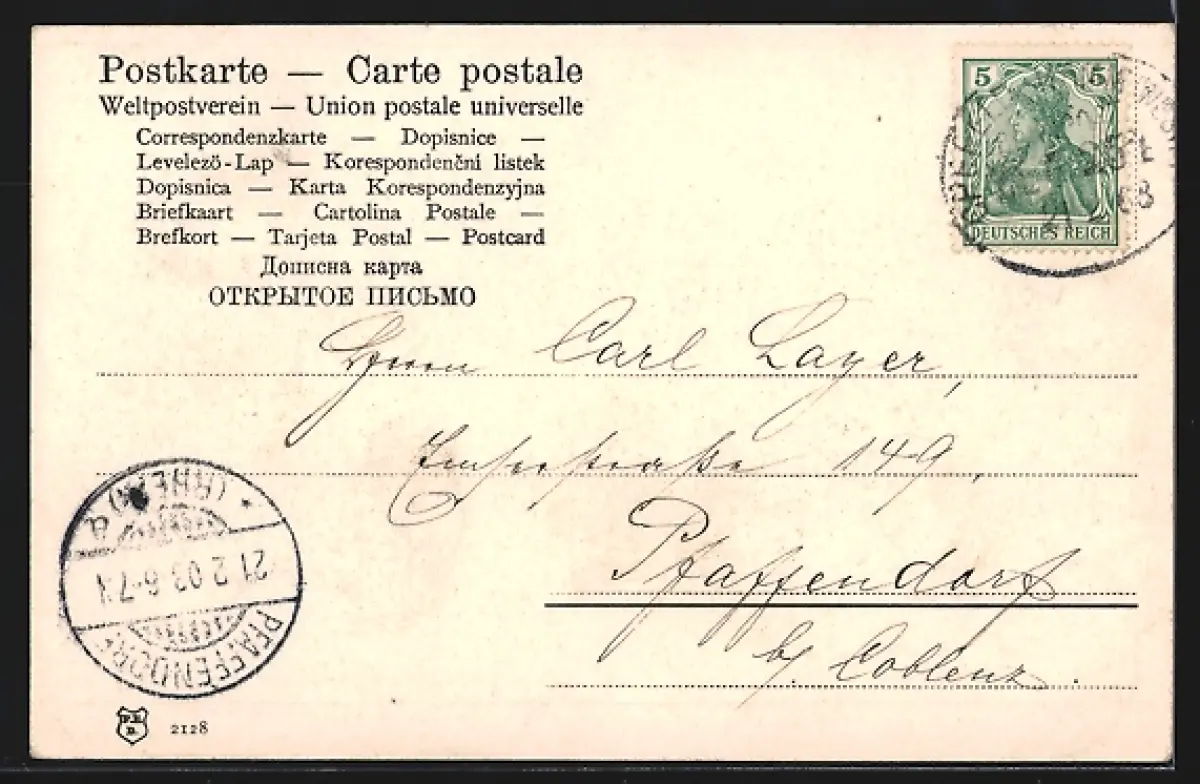 Postkarte — Carte postale
Weltpostverein — Union postale universelle
Correspondenzkarte — Dopisnice —
Levelező-Lap — Korespondenční listek
Dopisnica — Karta Korespondenzyjna
Briefkaart — Cartolina Postale —
Brefkort — Tarjeta Postal — Postcard
Дописна карта
ОТКРЫТОЕ ПИСЬМО
5 5
DEUTSCHES REICH
Herrn Carl Layer,
Emserstraße 149,
Pfaffendorf
b/ Coblenz.
PFAFFENDORF
21 2 03 6-7 N
(RHEIN) a
2128